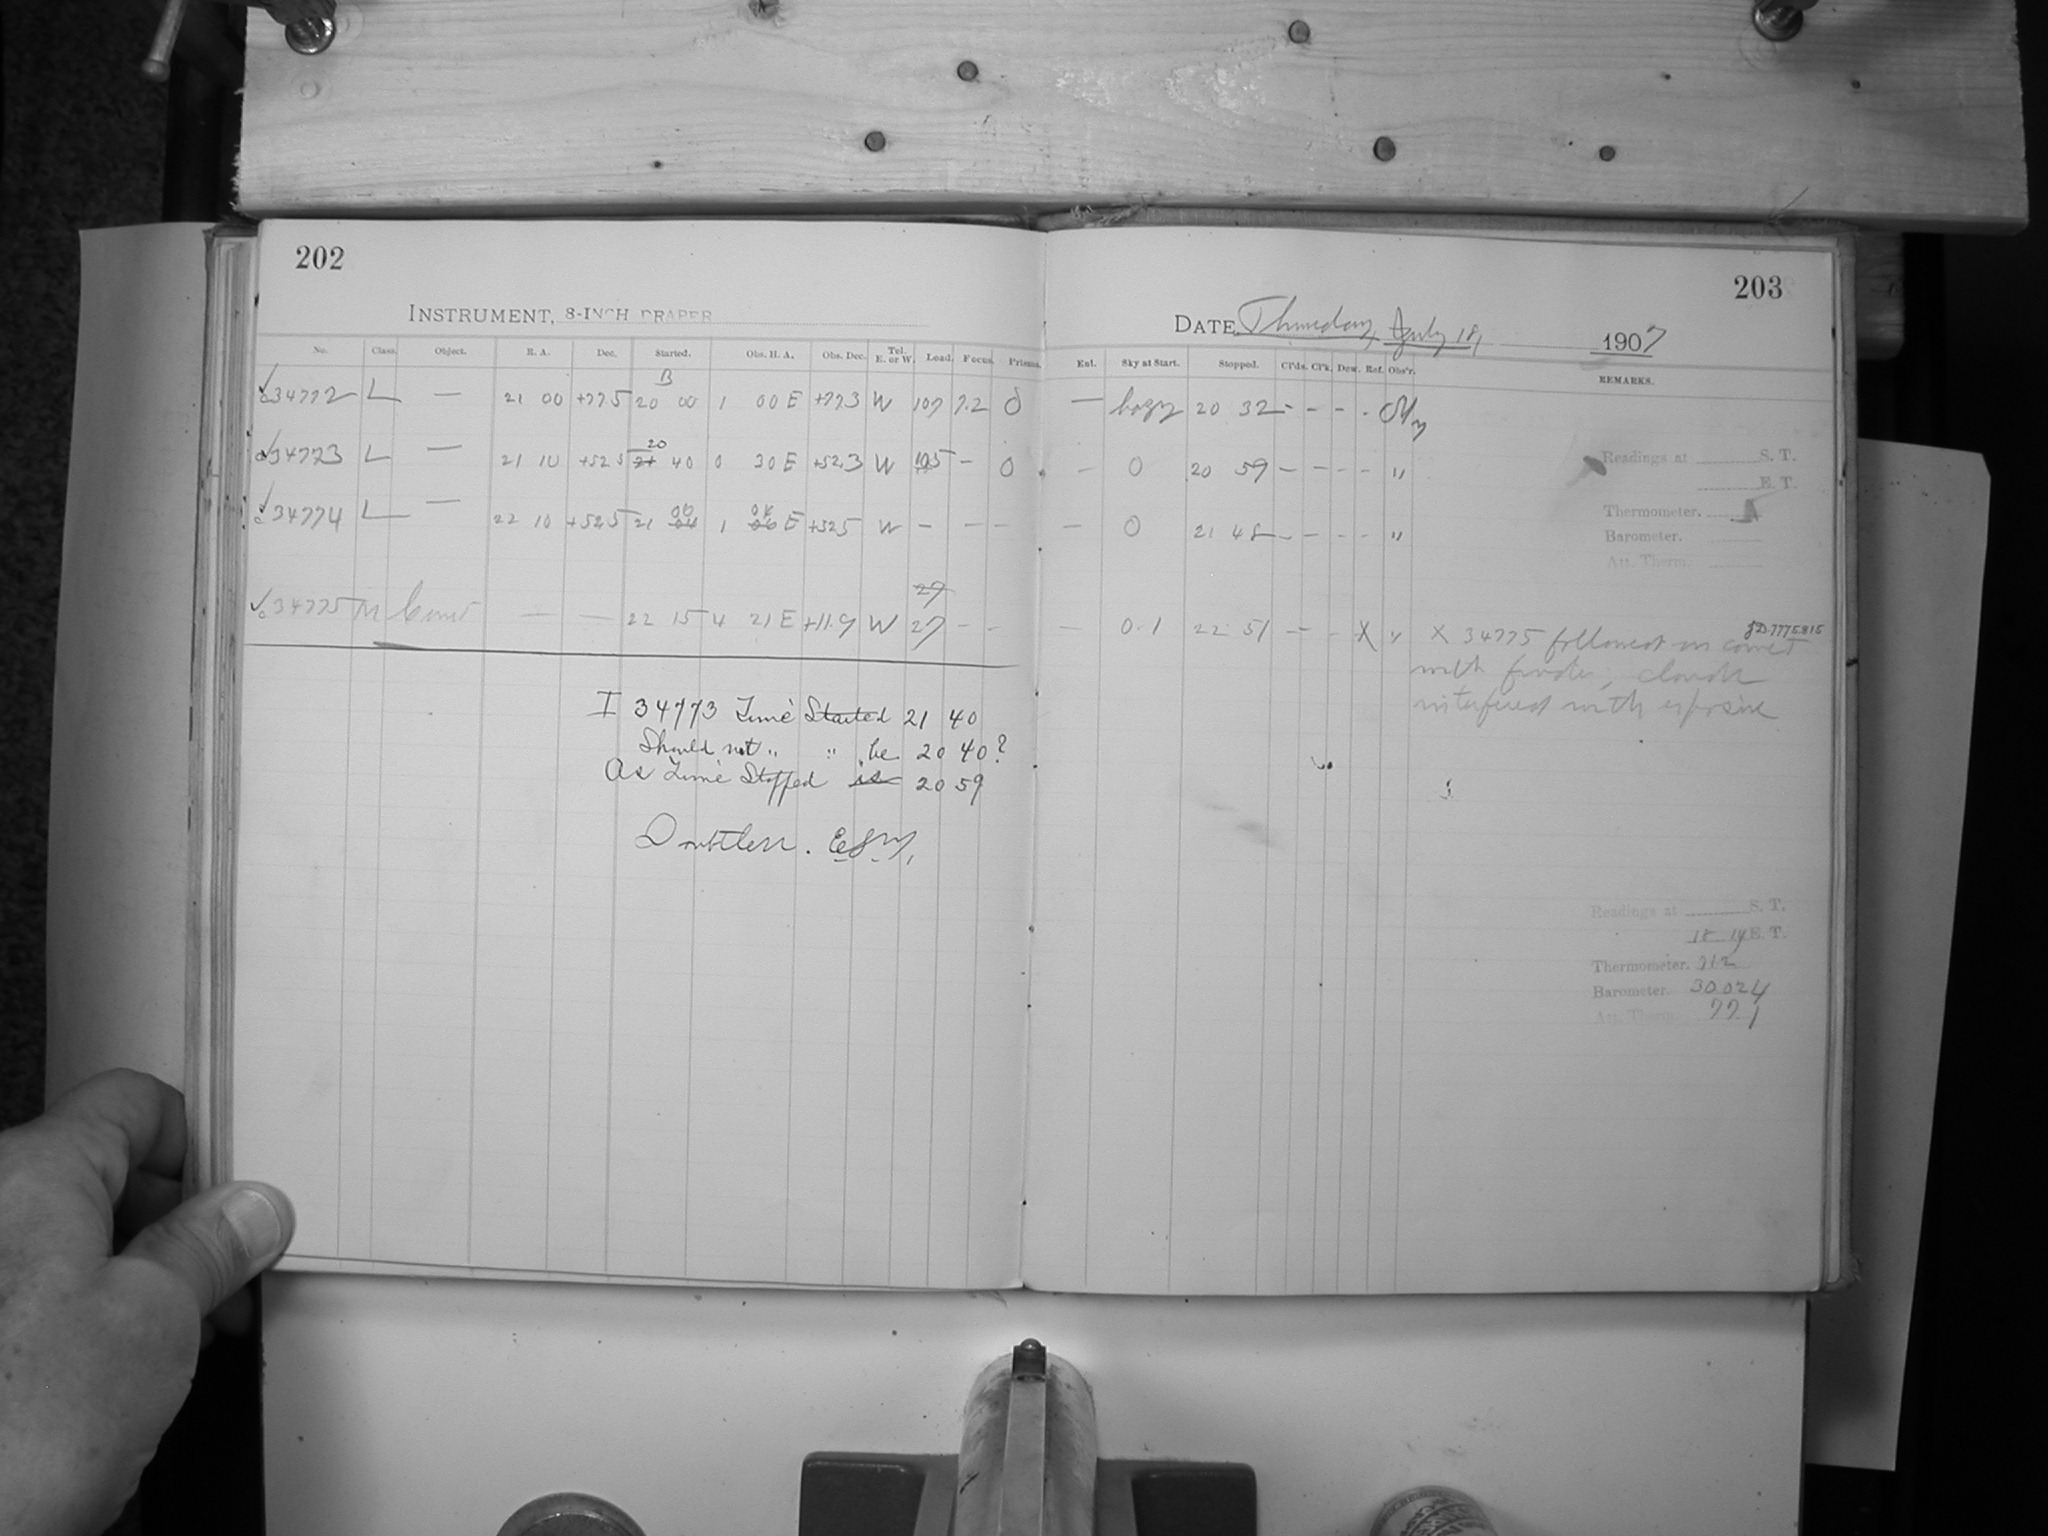 202
203
INSTRUMENT, 8-INCH DRAPER
DATE Thursday, July 18, 1907
No. Class. Object. R. A. Dec. Started. Obs. H. A. Obs. Dec. Tel. E. or W. Load. Focus. Prisms. Ent. Sky at Start. Stopped. Cl'ds. Cl'k. Dew. Ref. Obs'r. REMARKS.
B
34772 L — 21 00 +775 20 00 1 00 E +773 W 107 7.2 0 — hazy 20 32 - - - -
20
34773 L — 21 10 +525 21 40 0 30 E +523 W 105 - 0 - 0 20 59 - - - - "
00 04
34774 L — 22 10 +525 21 04 1 06 E +525 W - - - - 0 21 48 - - - - "
27
34775 M Comet — — 22 15 4 21 E +11.9 W 27 - - - 0-1 22 51 - - X " X 34775 followed on comet
JD.7775.815
with finder; clouds
interfered with exposure
Readings at S. T.
E. T.
Thermometer.
Barometer.
Att. Therm.
I 34773 Time Started 21 40
Should not " " be 20 40?
As Time Stopped is 20 59
Doubtless.
Readings at S. T.
E. T.
Thermometer.
Barometer. 30.024
Att. Therm. 77 1